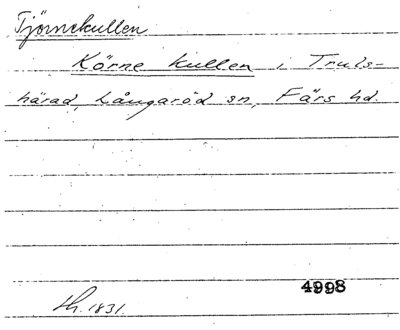 Tjörnekullen
Körne kullen i Truls-
härad, Långaröd sn, Färs hd.
4998
lh. 1831.